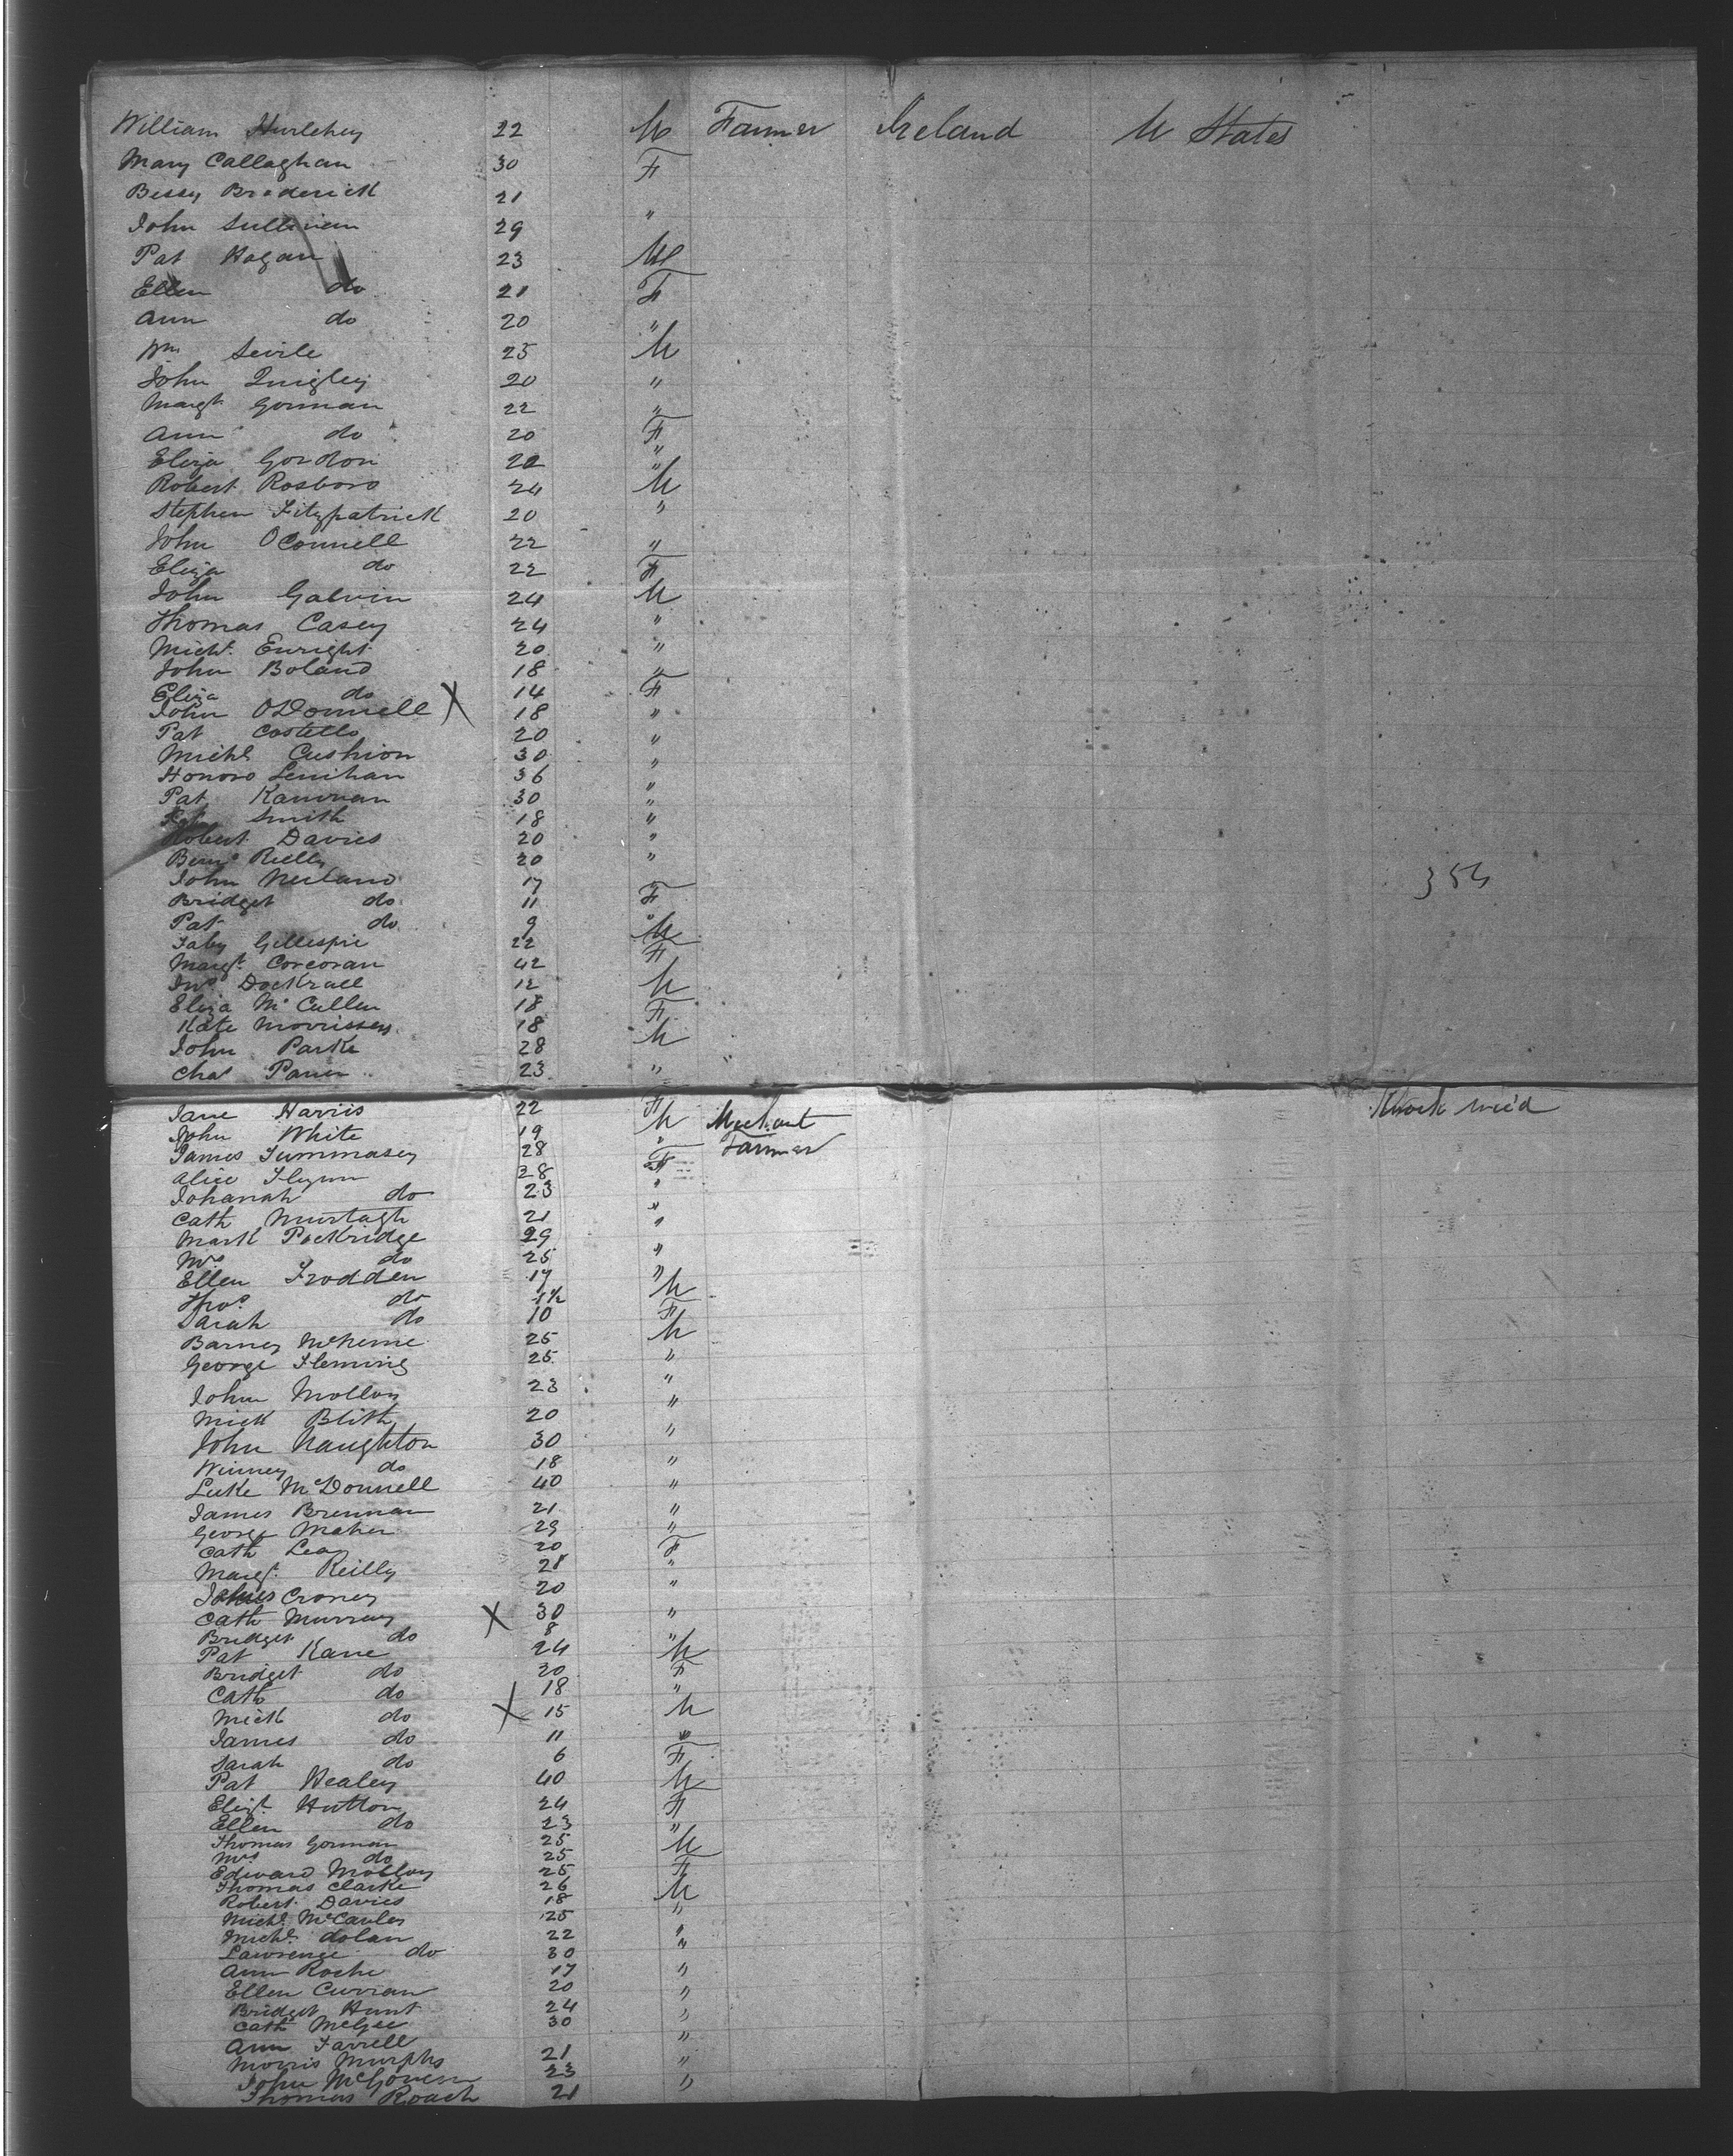 William Hurlehey 22 M Farmer Ireland U States
Mary Callaghan 30 F
Bessy Broderick 21 "
John Sullivan 29
Pat Hogan 23 M
Ellen do 21 F
Ann do 20 "
Wm Sevile 25 M
John Quigley 20 "
Margt Gorman 22 "
Ann do 20 F
Eliza Gordon 22 "
Robert Rosboro 24 M
Stephen Fitzpatrick 20 "
John OConnell 22 "
Eliza do 22 F
John Galvin 24 M
Thomas Casey 24 "
Michl Enright 20 "
John Boland 18 "
Eliza do 14 F
John ODonnell X 18 "
Pat Costello 20 "
Michl Cushion 30 "
Honoro Lenihan 36 "
Pat Kannan 30 "
Smith 18 "
Robert Davies 20 "
Bernd Rielly 20 "
John Neiland 17
Bridget do 11 F 354
Pat do 9 M
Faby Gillespie 22 F
Margt Corcoran 42
Jno Dockrall 12 M
Eliza McCullen 18 F
Kate Morrissey 18
John Parke 28 M
Chas 23 "
Jane Harris 22 F
John White 19 M Mechant
James Tummasey 28 " Farmer
Alice Flynn 28 F
Johanah do 23 "
Cath Murtagh 21 "
Mark Pockridge 29 "
Mrs do 25 "
Ellen Frodden 17 "
Thos do 1½ M
Sarah do 10 F
Barney 25 M
George Fleming 25 "
John Molloy 23 "
Mick Blith 20 "
John Naughton 30 "
Winney do 18 "
Luke McDonnell 40 "
James Brennan 21 "
George Maher 29 "
Cath Leay 20 F
Margt Reilly 28 "
Croney 20 "
Cath Murray X 30 "
Bridget do 8 "
Pat Kane 24 M
Bridget do 20 F
Cath do 18 "
Mick do X 15 M
James do 11 "
Sarah do 6 F
Pat Healey 40 M
Elizt Hutton 24 F
Ellen do 23 "
Thomas Gorman 25 M
Mrs do 25
Edward Molloy 25 F
Thomas Clarke 26 M
Robert Davies 18
Michl McCauley 25 "
Michl Dolan 22 "
Lawrence do 30 "
Ann Roche 17 "
Ellen Curran 20 "
Bridget Hunt 24 "
Cath McGee 30
Ann Farrell "
Morris Murphs 21 "
John McGovern 23 "
Thomas Roach 21